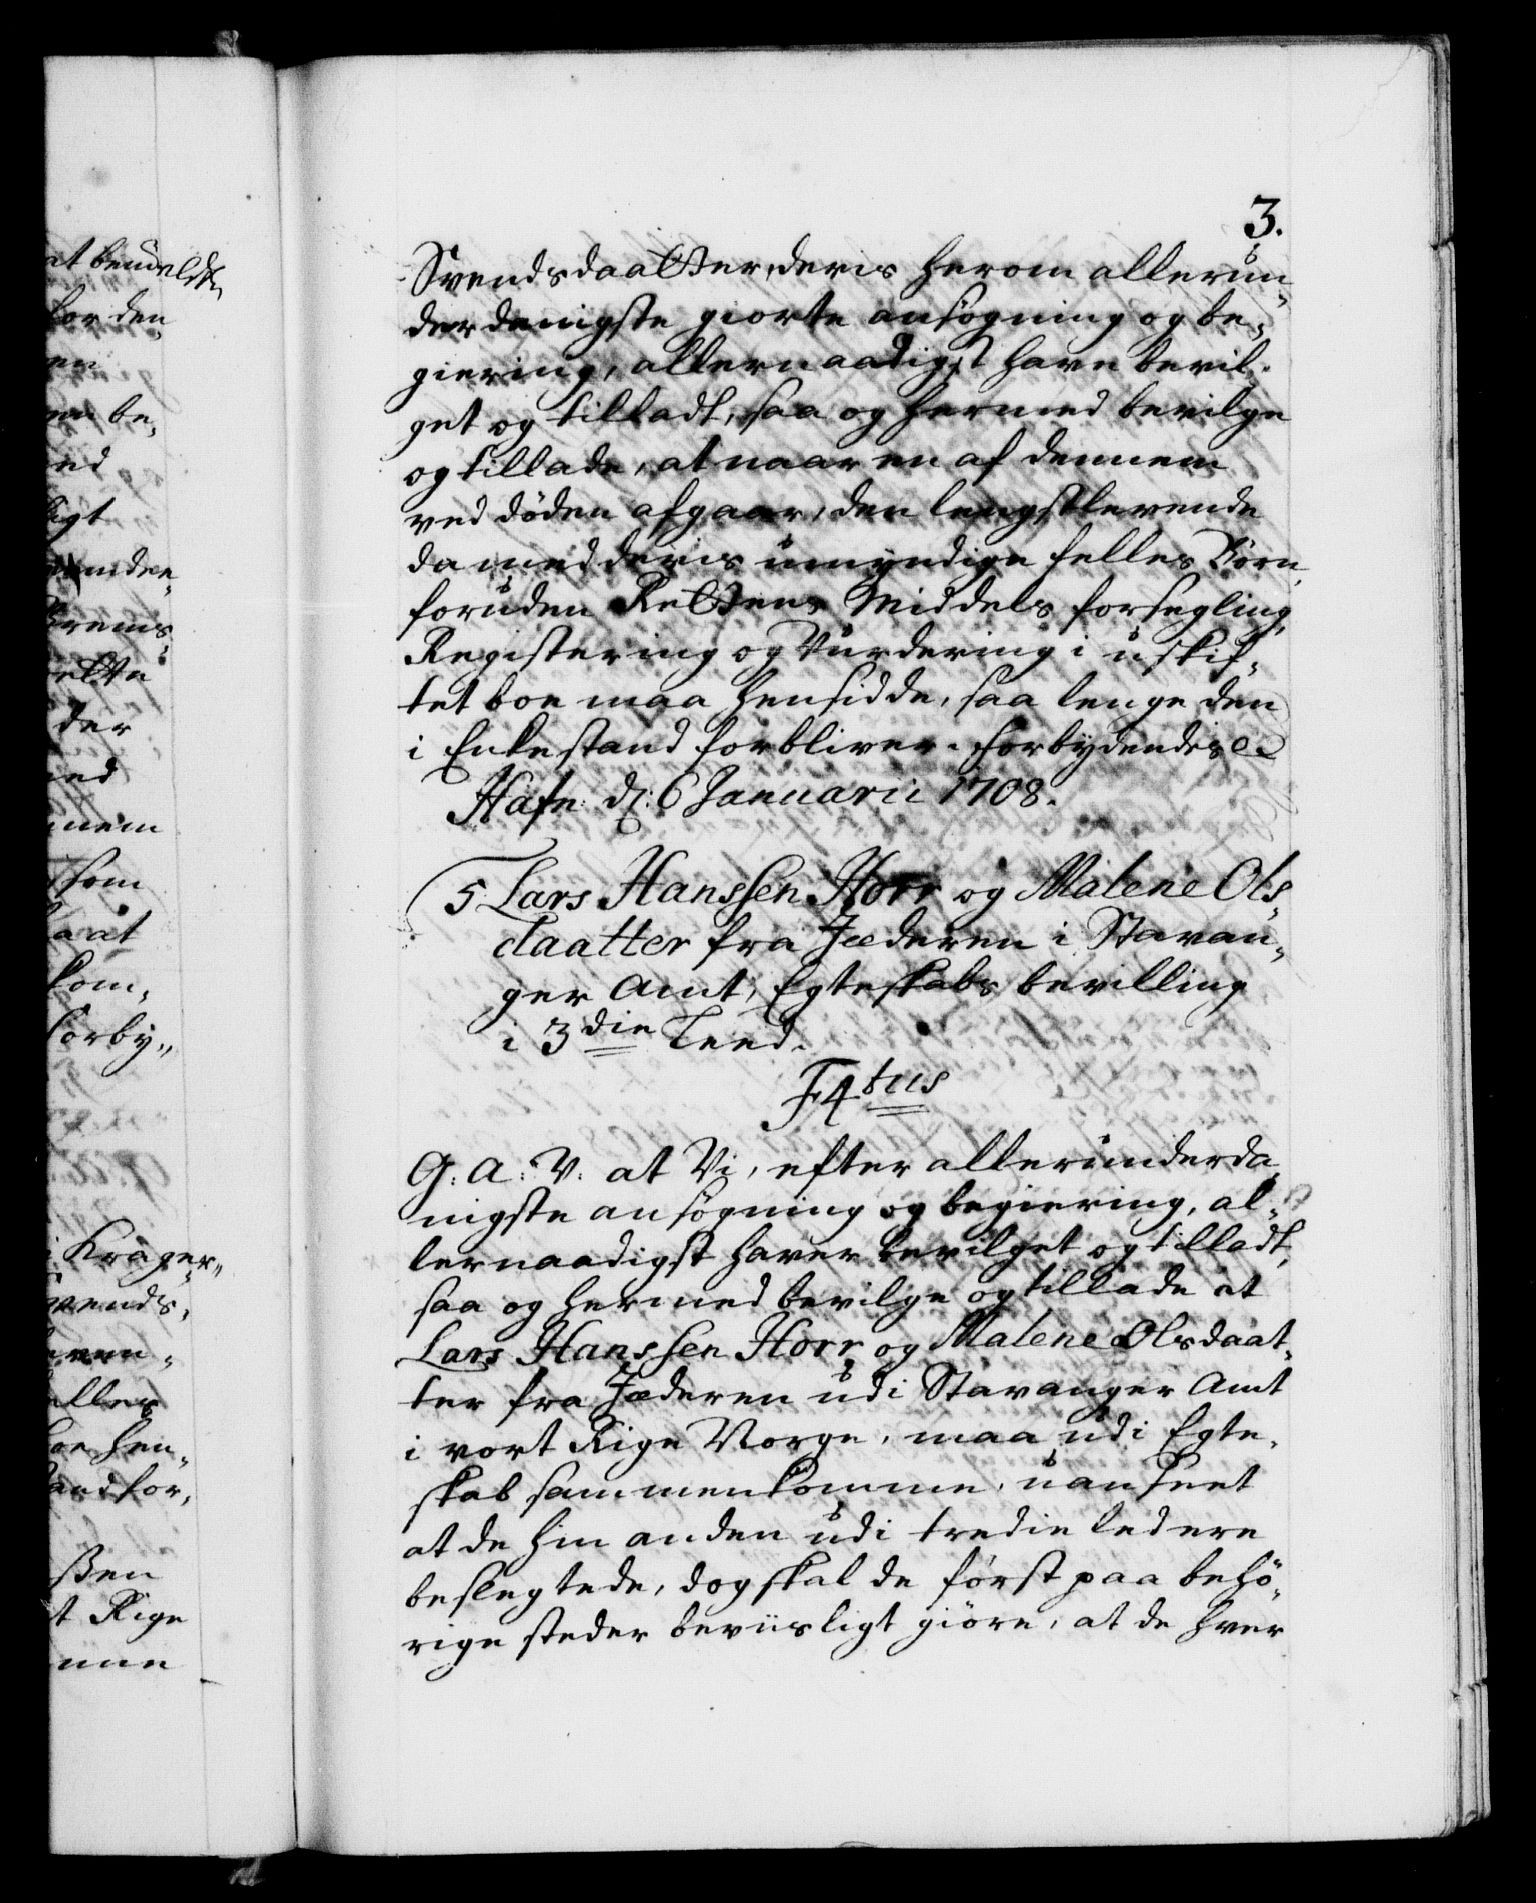 3.
Svendsdaatter, deris herom allerun„
derdanigste giorte ansøgning og be„
giering, allernaadigst have bevil„
get og tilladt, saa og hermed bevilge
og tillade, at naar en af dennem
ved döden afgaar, den lengstlevende
da med deris umyndige felles Börn,
foruden Rettens Middels forsegling,
Registering og Vurdering i uskif„
tet boe maa hensidde, saa lenge den
i Enkestand forbliver. Forbydendes &c
Hafn: d: 6 Januarii 1708.
5 Lars Hanssen Horr og Malene Ols„
daatter fra Jæderen i Stavan„
ger Amt, Egteskabs bevilling
i 3die Leed.
F4tus
G: A: V: at Vi, efter allerunderda„
nigste ansøgning og begiering, al„
lernaadigst haver bevilget og tilladt,
saa og hermed bevilge og tillade at
Lars Hanssen Horr og Malene Olsdaat„
ter fra Jæderen udi Stavanger Amt
i vort Rige Norge, maa udi Egte„
skab sammenkomme, uanseet
at de hin anden udi tredie led ere
beslegtede, dog skal de först paa behö„
rige steder beviisligt giöre, at de hver